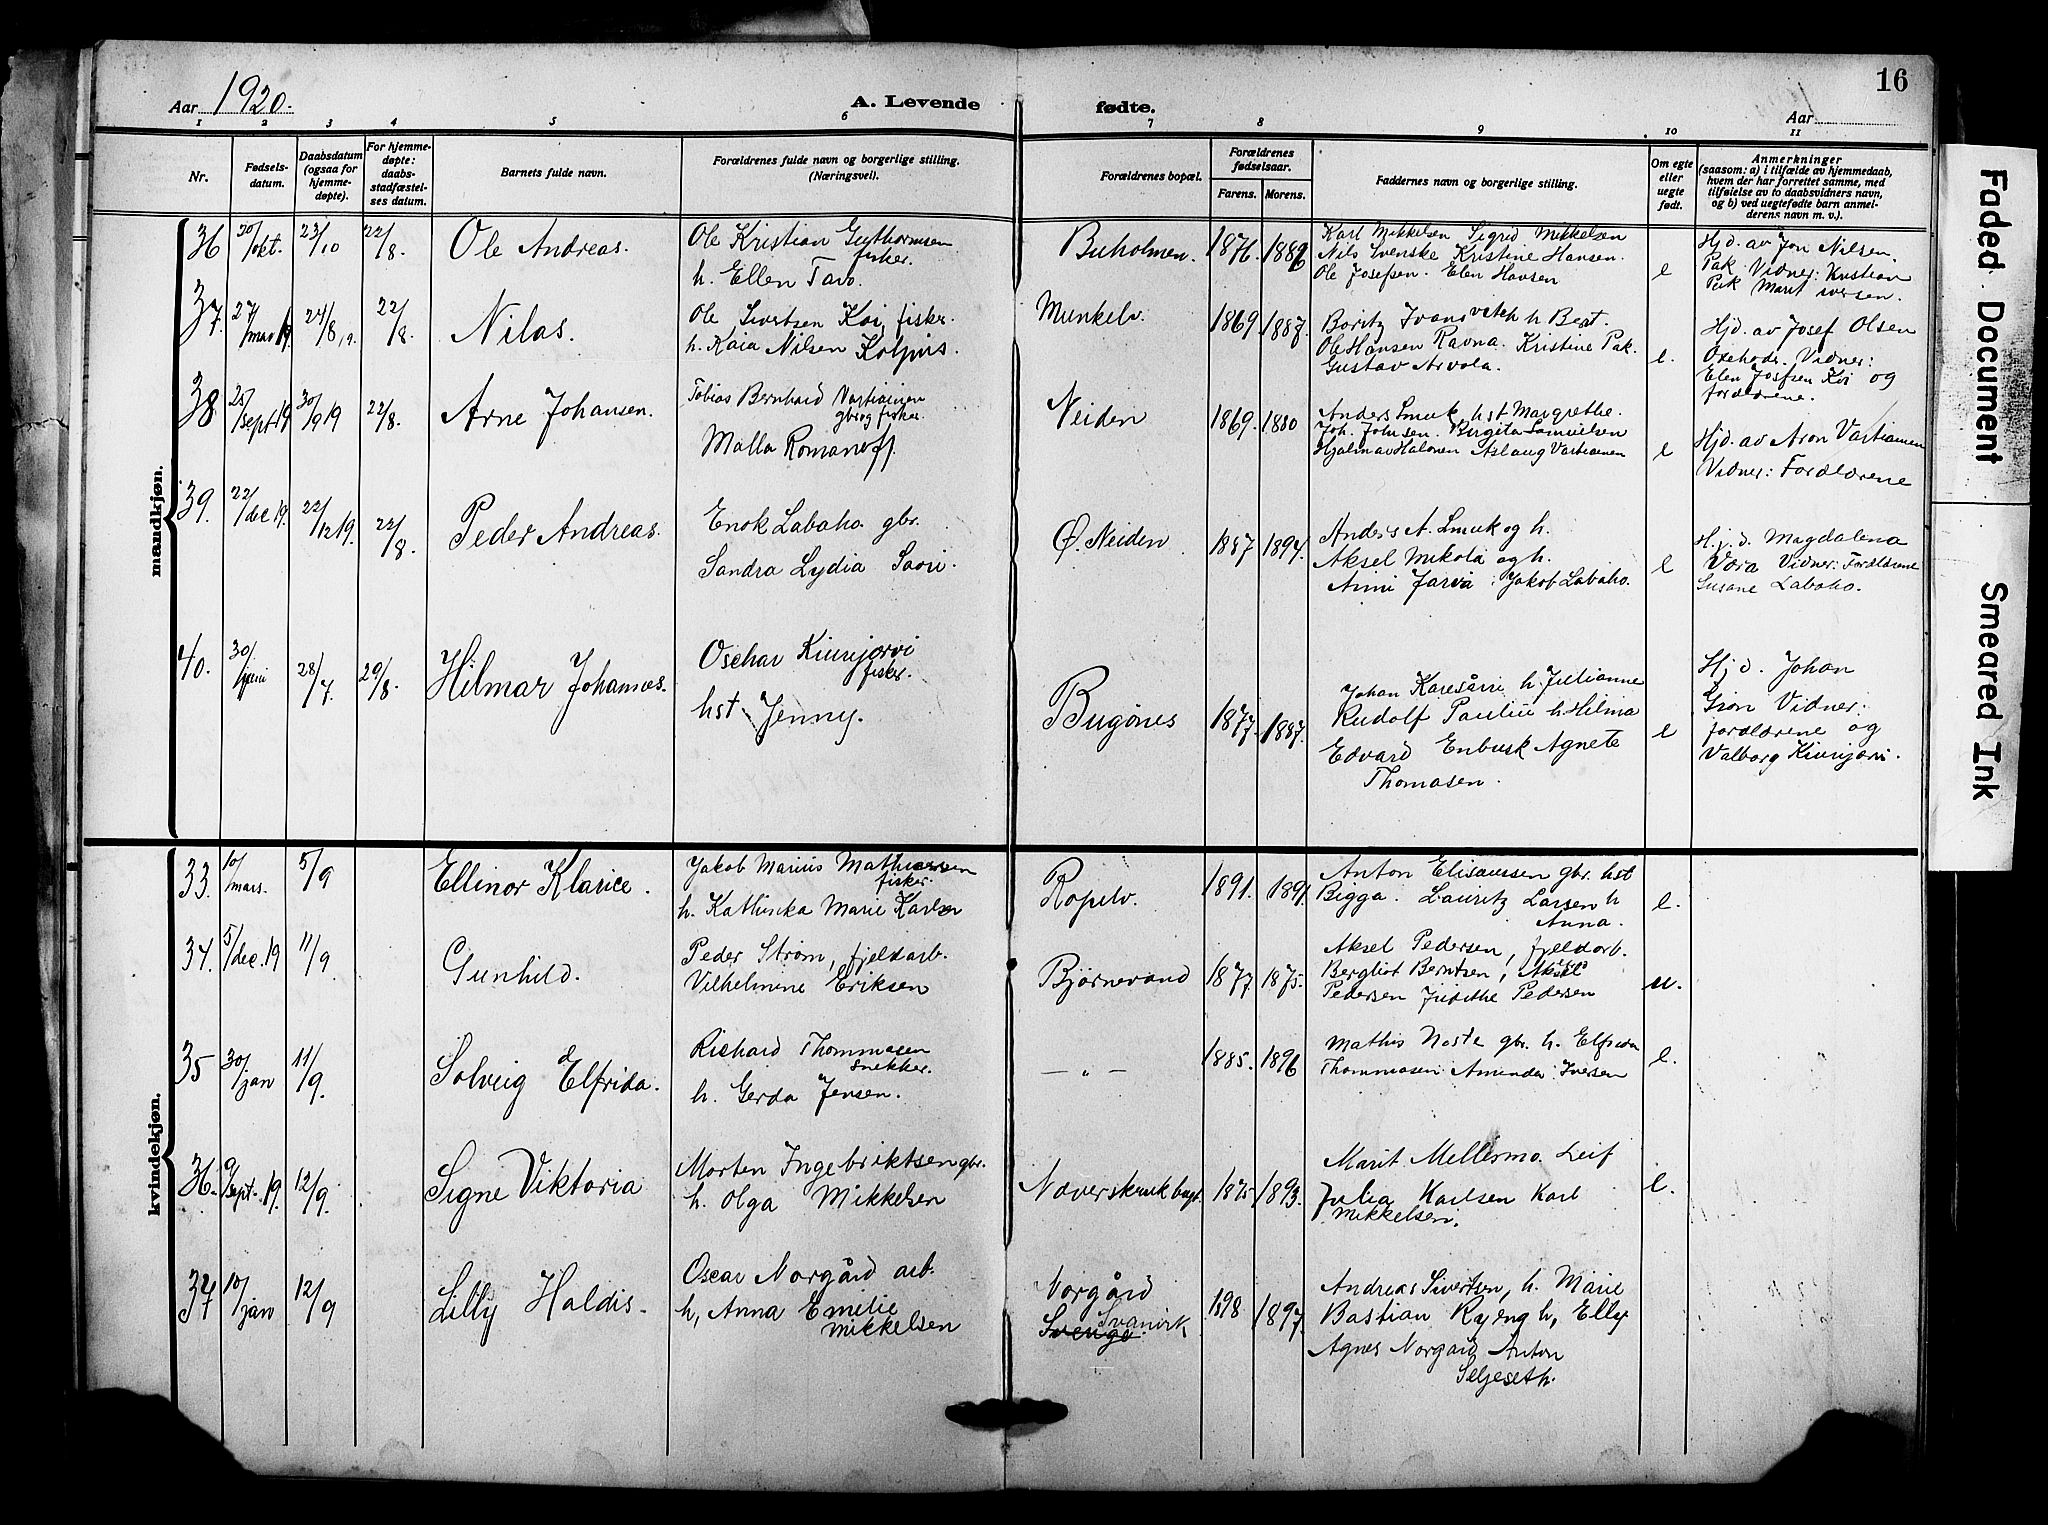 16
Aar 1920.
A. Levende fødte.
Aar
1 2 3 4 5 6 7 8 9 10 11
Nr.
Fødsels-
datum.
Daabsdatum
(ogsaa for
hjemme-
døpte).
For hjemme-
døpte:
daabs-
stadfæstel-
ses datum.
Barnets fulde navn.
Forældrenes fulde navn og borgerlige stilling.
(Næringsvei).
Forældrenes bopæl.
Forældrenes
fødselsaar.
Farens. Morens.
Faddernes navn og borgerlige stilling.
Om egte
eller
uegte
født.
Anmerkninger
(saasom: a) i tilfælde av hjemmedaab,
hvem der har forrettet samme, med
tilføielse av to daabsvidners navn,
og b) ved uegtefødte barn anmel-
derens navn m. v.).
mandkjøn.
36 20/okt. 23/10 22/8. Ole Andreas.
Ole Kristian Guthormsen
fisker.
h. Ellen Tavo.
Buholmen. 1876. 1886
Karl Mikkelsen Sigrid Mikkelsen
Nils Svenske Kristine Hansen.
Ole Josefsen. Elen Hansen
e
Hjd. av Jon Nilsen.
Pak. Vidner: Kristian
Pak Marit Iversen.
37. 27/mar 19. 24/8, 9. 22/8. Nilas.
Ole Sivertsen Koi, fisker.
h. Kaia Nilsen Kolpus.
Munkelv. 1869. 1887.
Boritz Ivanovitch h Berit.
Ole Hansen Ravna. Kristine Pak.
Gustav Arvola.
e.
Hjd. av Josef Olsen
Vidner:
Elen Josefsen Koi og
forældrene.
38 25/sept 19 30/9 19 22/8. Arne Johansen.
Tobias Bernhard Vartiainen
gbr og fisker
Malla Romanoff.
Neiden 1869. 1880
Anders Smuk, hst Margrethe.
Joh. Johnsen. Birgita Samuelsen
Hjalmar Halonen Aslaug Vartiainen
e
Hjd. av Aron Vartiainen
Vidner: Forældrene
39. 22/dec 19. 22/12 19. 22/8. Peder Andreas.
Enok Labaho. gbr.
Sandra Lydia Saori.
Ø. Neiden. 1887 1894.
Anders A. Smuk og h.
Aksel Mikola og h.
Anni Jarva. Jakob Labaho.
e
H.j.d. Magdalena
Vara Vidner: Forældrene
Susane Labaho.
40. 30/juni 28/7. 29/8. Hilmar Johannes.
Oschar Kiurijorvi
fisker.
hst Jenny.
Bugönes 1877. 1887.
Johan Karesärri h Julianne
Rudolf Paulii h. Hilma
Edvard Enbusk Agnete
Thomasen.
e
Hj d. Johan
Gron Vidner:
forældrene og
Valborg Kiurijorvi.
kvindekjøn.
33. 10/mars. 5/9 Ellinor Klarice.
Jakob Marius Mathiesen
fisker.
h. Kathinka Marie Karlsen
Ropelv. 1891. 1891.
Anton Elisausen gbr. hst
Bigga. Lauritz Larsen h
Anna.
e.
34. 5/dec. 19 11/9. Gunhild.
Peder Strøm, fjeldarb.
Vilhelmine Eriksen
Björnevand 1877 1875.
Aksel Pedersen, fjeldarb.
Bergliot Berntsen, Aksel
Pedersen Judithe Pedersen
u.
35 30/jan 11/9. Solveig Elfrida.
Richard Thommasen
snekker.
h. Gerda Jensen.
- " - 1885. 1896
Mathis Noste gbr. h. Elfrida
Thommasen Amanda Iversen
e.
36. 9/sept. 19. 12/9. Signe Viktoria
Morten Ingebriktsen gbr.
h. Olga Mikkelsen
Noverskrukbugt. 1875 1893.
Marit Mellesmo. Leif
Julia Karlsen Karl
Mikkelsen.
e.
37 10/jan 12/9 Lilly Haldis.
Oscar Norgård arb.
h, Anna Emilie
Mikkelsen
Norgård
Svanvik
1898 1897.
Andreas Sivertsen, h. Marie
Bastian Ryeng h, Elly
Agnes Norgård Anton
Seljeseth.
Faded Document
Smeared Ink